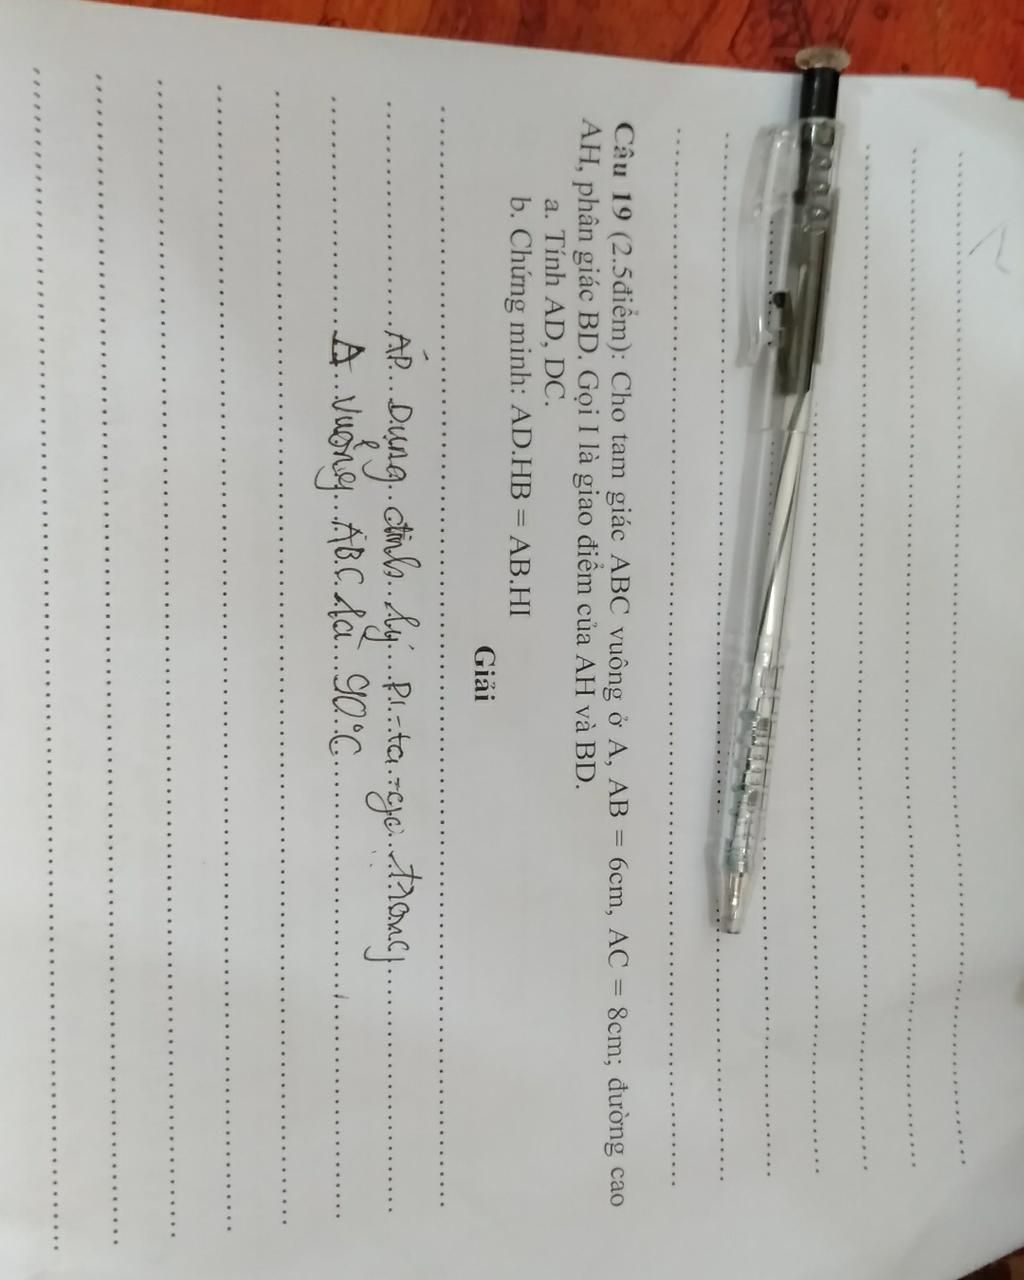 Câu 19 (2.5điểm): Cho tam giác ABC vuông ở A, AB = 6cm, AC = 8cm; đường cao
AH, phân giác BD. Gọi I là giao điểm của AH và BD.
a. Tính AD, DC.
b. Chứng minh: AD.HB = AB.HI
Giải
Áp Dụng định lý Pi-ta-go trong
Δ vuông ABC là 90°C